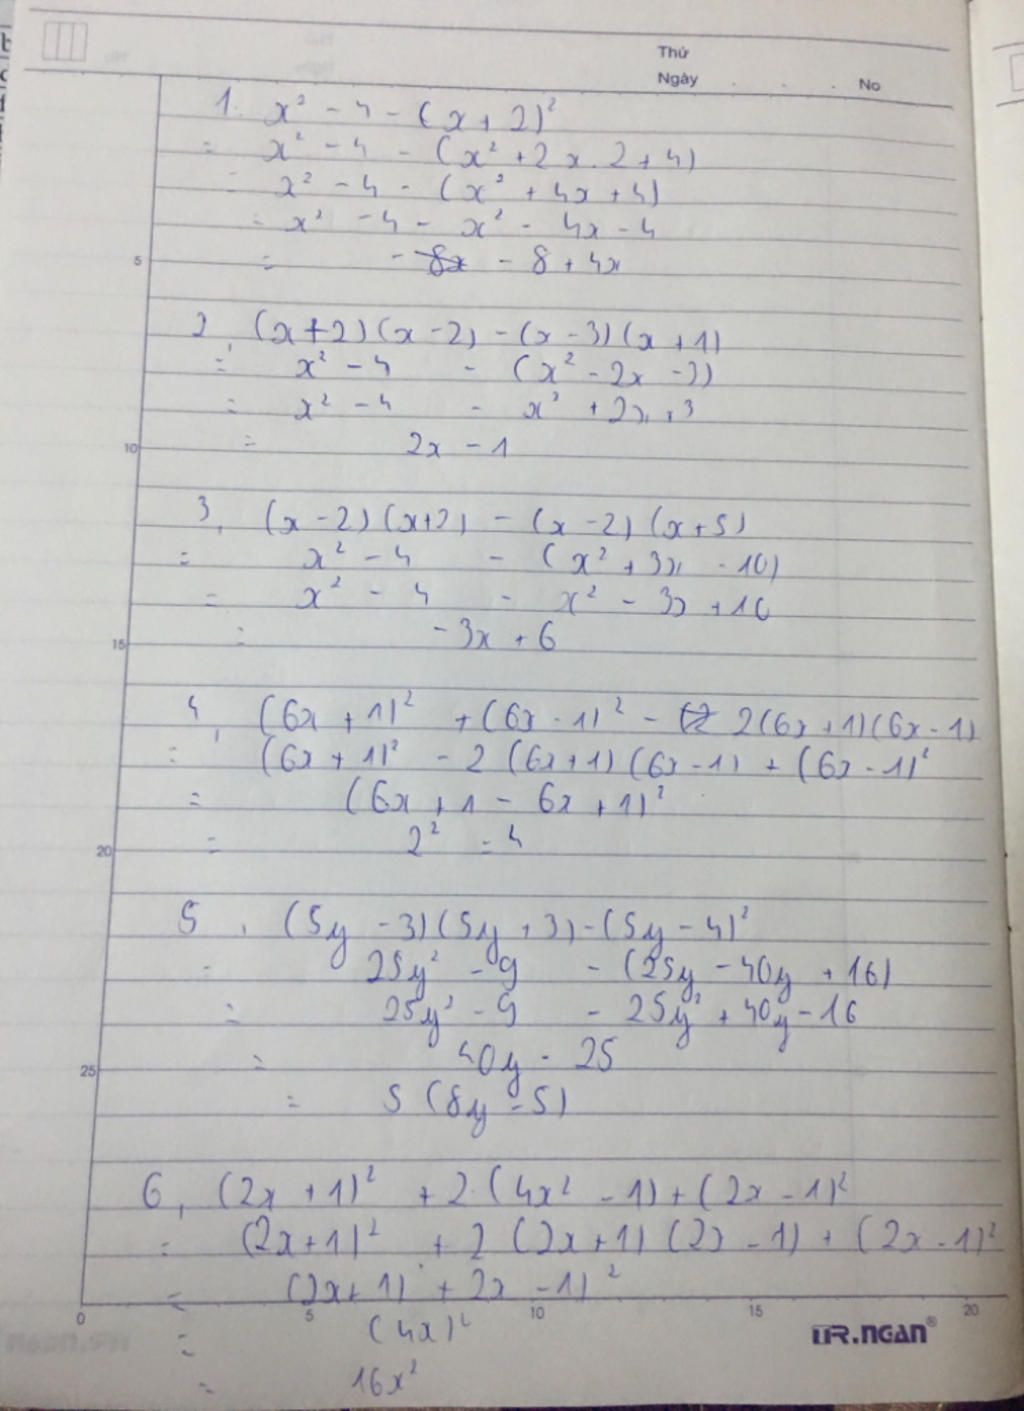 Thứ
Ngày . . . No
1. x² - 4 - (x + 2)²
= x² - 4 - (x² + 2x.2 + 4)
= x² - 4 - (x² + 4x + 4)
= x² - 4 - x² - 4x - 4
= - 8 + 4x
2, (x+2)(x-2) - (x-3)(x+1)
= x² - 4 - (x² - 2x - 3)
= x² - 4 - x² + 2x + 3
= 2x - 1
3, (x-2)(x+2) - (x-2)(x+5)
= x² - 4 - (x² + 3x - 10)
= x² - 4 - x² - 3x + 10
= -3x + 6
4, (6x + 1)² + (6x - 1)² - 2(6x+1)(6x-1)
= (6x + 1)² - 2(6x+1)(6x-1) + (6x-1)²
= (6x + 1 - 6x + 1)²
= 2² = 4
5, (5y - 3)(5y + 3) - (5y - 4)²
= 25y² - 9 - (25y - 40y + 16)
= 25y² - 9 - 25y² + 40y - 16
= 40y - 25
= 5(8y - 5)
6, (2x + 1)² + 2.(4x² - 1) + (2x - 1)²
= (2x+1)² + 2(2x+1)(2x-1) + (2x-1)²
= (2x+1) + 2x - 1)²
= (4x)²
= 16x²
5
10
15
20
25
0 5 10 15 20
TR.NGAN®